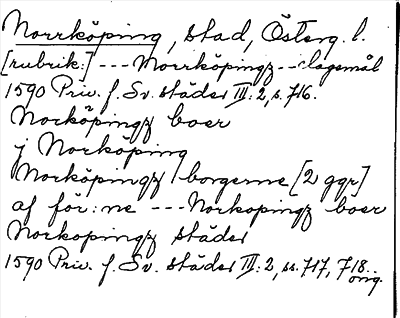 Norrköping, stad, Österg. l.
[rubrik:] --- Norrköpingz -- clagemål
1590 Priv. f. Sv. städer III: 2, s. 716.
Norköpingz boer
j Norköping
Norköpingz borgerne [2 ggr]
af för:ne --- Norkopingz böer
Norkopingz städer
1590 Priv. f. Sv. städer III: 2, ss. 717, 718.
orig.